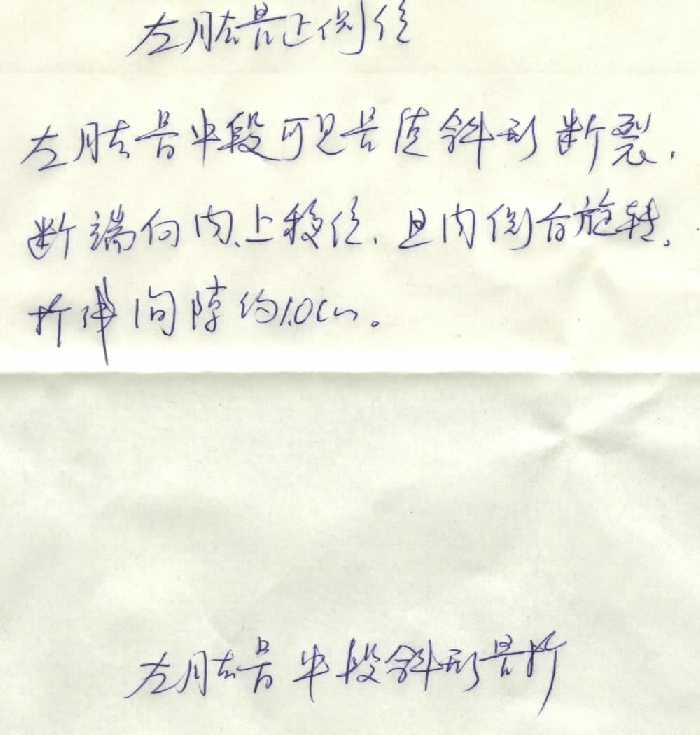 左肱骨正侧位
左肱骨中段可见骨质斜形断裂,
断端向内、上移位,且内侧旋转,
折间隙约1.0cm。
左肱骨中段斜形骨折